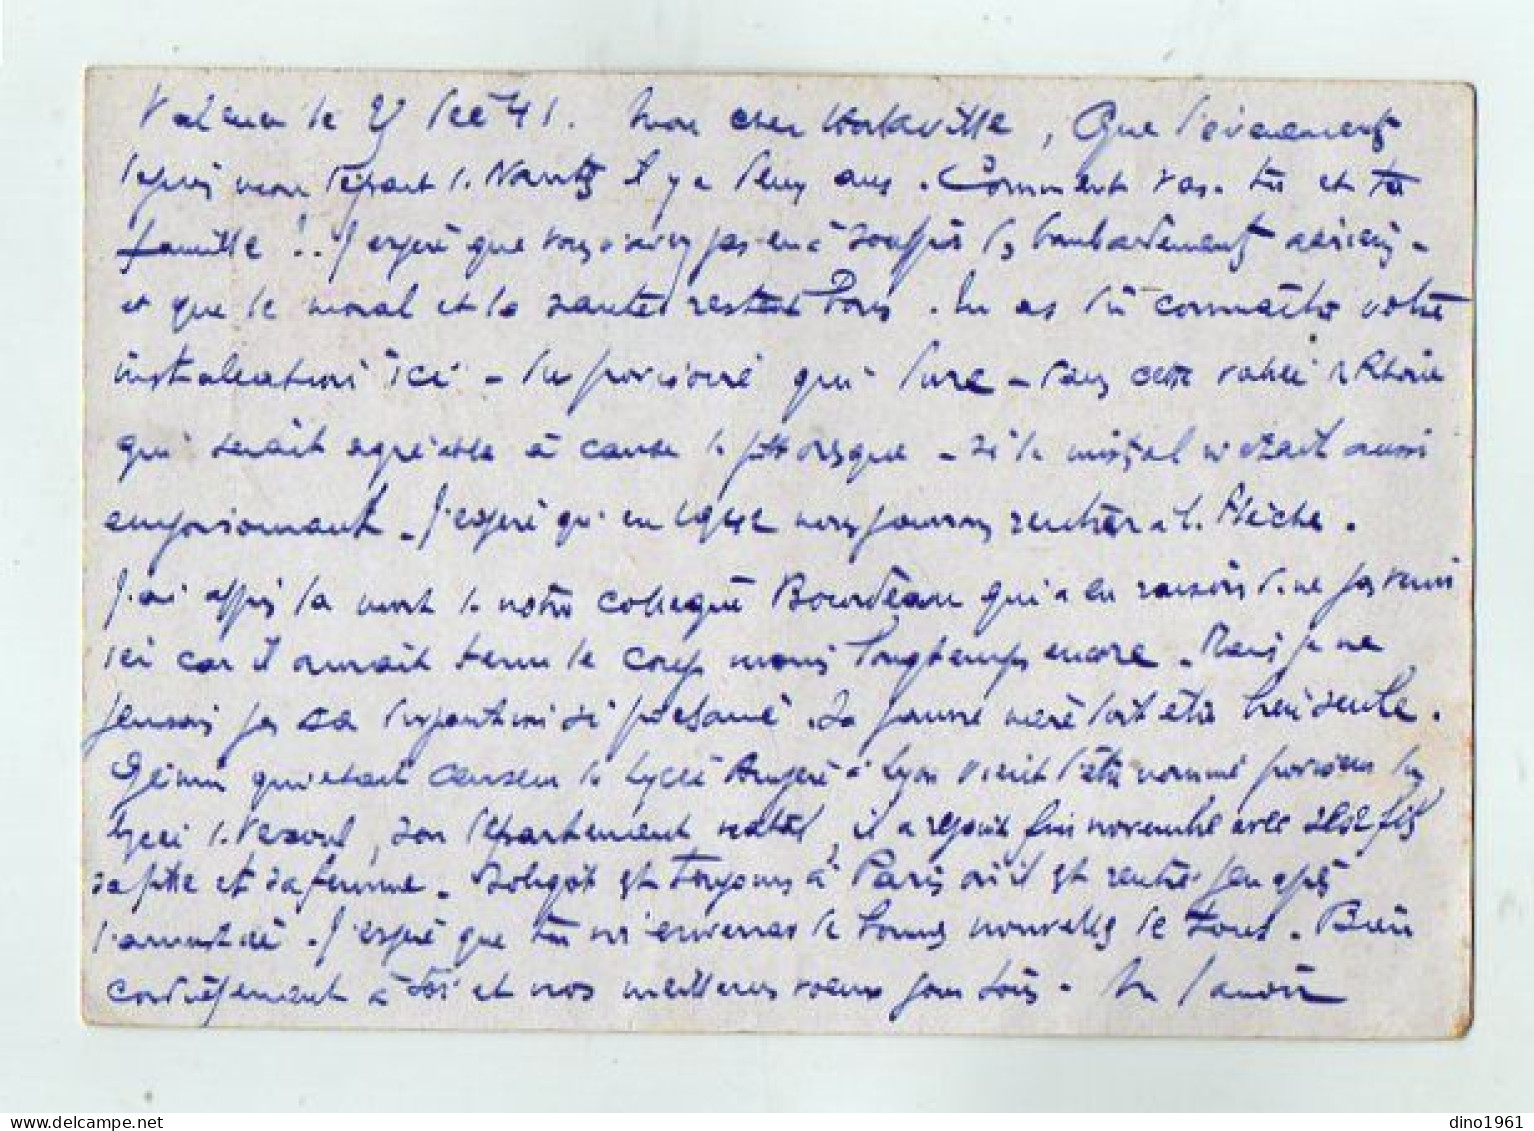 Valence le 27 Déc 41. Mon cher, Que d'évènements
depuis mon départ de Nantes il y a deux ans. Comment vas-tu et ta
famille !.. J'espère que vous n'avez pas eu à souffrir des bombardements aériens -
et que le moral et la santé restent bons. Tu as dû connaître notre
installation ici - du provisoire qui dure - dans cette vallée du Rhône
qui serait agréable à cause du pittoresque - si le mistral n'était aussi
empoisonnant. J'espère qu'en 1942 nous pourrons rentrer à La Flèche.
J'ai appris la mort de notre collègue Bourdeau qui a eu raison de ne pas venir
ici car il aurait tenu le coup moins longtemps encore. Mais je ne
pensais pas sa disparition si proche. Sa pauvre mère doit être
qui était censeur du lycée Ampère à Lyon vient d'être nommé proviseur du
lycée de Vesoul, son département natal, il a rejoint fin novembre avec ses 2 fils
sa fille et sa femme. est toujours à Paris où il est rentré peu après
l'armistice. J'espère que tu m'enverras de bonnes nouvelles de tous. Bien
cordialement à toi et nos meilleurs vœux pour tous.